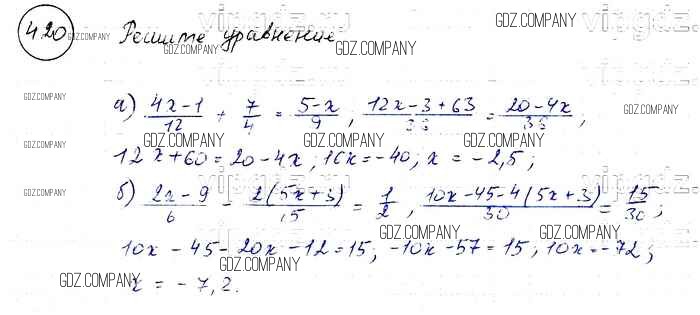 420 Решите уравнение
а) (4x-1)/12 + 7/4 = (5-x)/9 ; (12x-3+63)/36 = (20-4x)/36 ;
12x+60=20-4x; 16x=-40, x = -2,5;
б) (2x-9)/6 - 2(5x+3)/15 = 1/2 , (10x-45-4(5x+3))/30 = 15/30 ;
10x - 45 - 20x - 12 = 15; -10x - 57 = 15; 10x = -72;
x = -7,2.
GDZ.COMPANY
GDZ.COMPANY
GDZ.COMPANY
GDZ.COMPANY
GDZ.COMPANY
GDZ.COMPANY
GDZ.COMPANY
GDZ.COMPANY
GDZ.COMPANY
GDZ.COMPANY
GDZ.COMPANY
GDZ.COMPANY
GDZ.COMPANY
GDZ.COMPANY